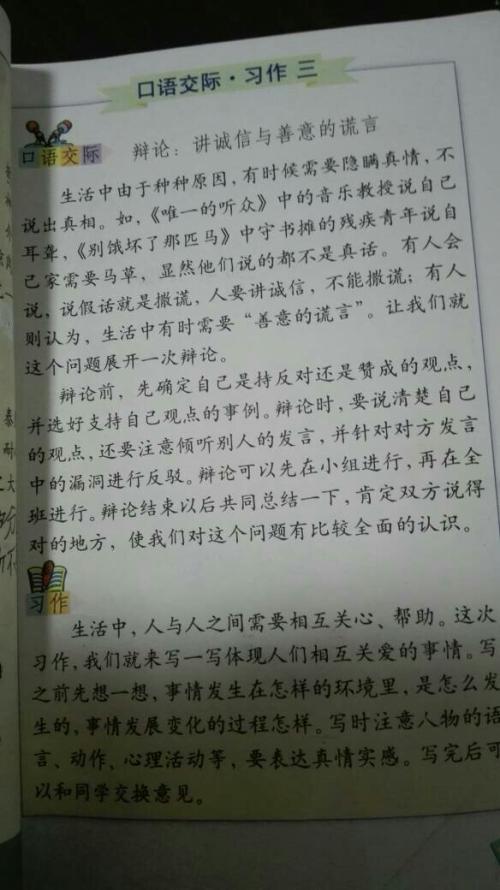 口语交际·习作 三
口语交际
辩论：讲诚信与善意的谎言
生活中由于种种原因，有时候需要隐瞒真情，不
说出真相。如，《唯一的听众》中的音乐教授说自己
耳聋，《别饿坏了那匹马》中守书摊的残疾青年说自
己家需要马草，显然他们说的都不是真话。有人会
说，说假话就是撒谎，人要讲诚信，不能撒谎；有人
则认为，生活中有时需要“善意的谎言”。让我们就
这个问题展开一次辩论。
辩论前，先确定自己是持反对还是赞成的观点，
并选好支持自己观点的事例。辩论时，要说清楚自己
的观点，还要注意倾听别人的发言，并针对对方发言
中的漏洞进行反驳。辩论可以先在小组进行，再在全
班进行。辩论结束以后共同总结一下，肯定双方说得
对的地方，使我们对这个问题有比较全面的认识。
习作
生活中，人与人之间需要相互关心、帮助。这次
习作，我们就来写一写体现人们相互关爱的事情。写
之前先想一想，事情发生在怎样的环境里，是怎么发
生的，事情发展变化的过程怎样。写时注意人物的语
言、动作、心理活动等，要表达真情实感。写完后可
以和同学交换意见。